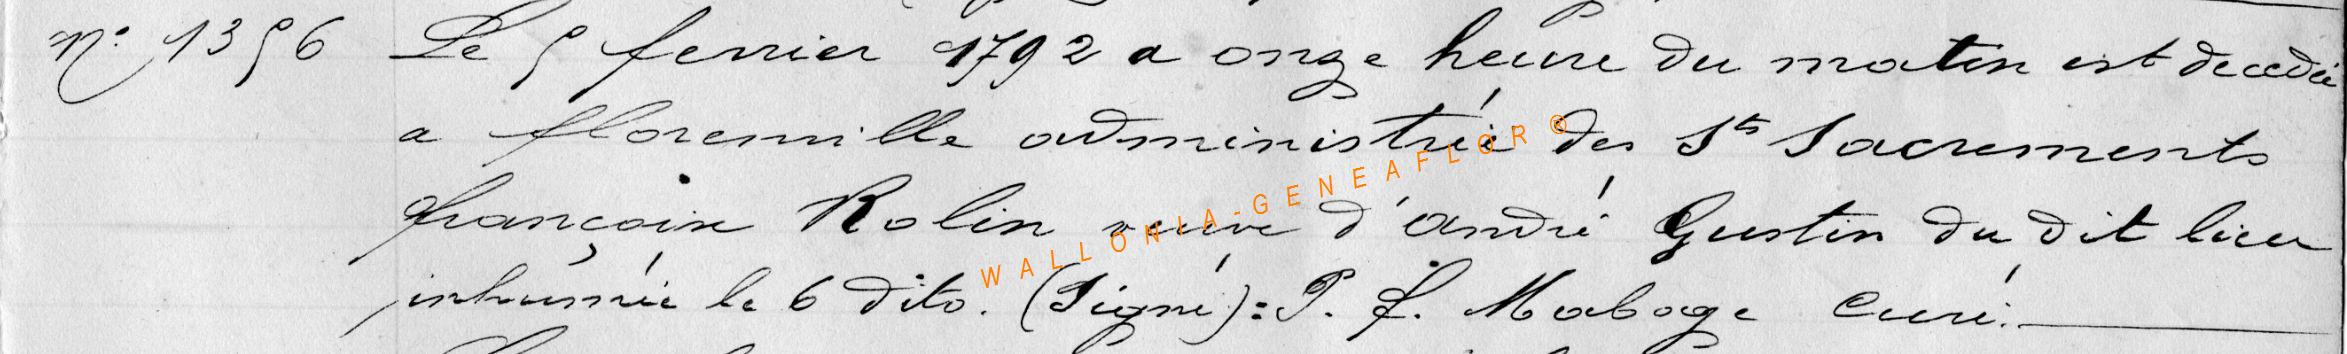 n° 1356 Le 5 fevrier 1792 a onze heure du matin est decedée
a florenville administrée des Sts Sacrements
françoise Rolin veuve d'André Gustin du dit lieu
inhumée le 6 dito. (Signé): P. f. Maboge Curé.
WALLONIA-GENEAFLOR ®